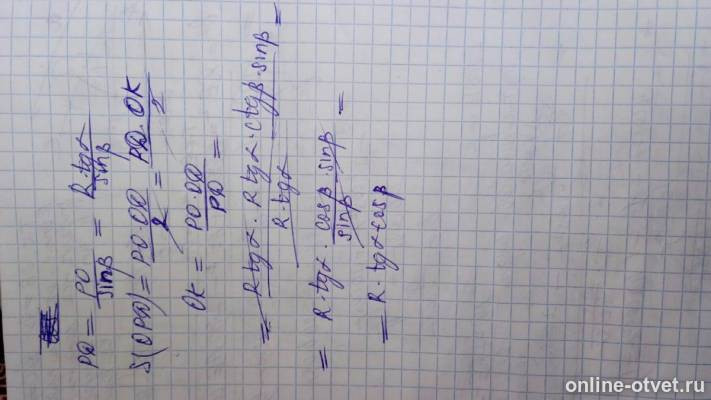 PD = PO/sinβ = R·tgα/sinβ
S(OPD) = PO·OD/2 = PD·OK/2
OK = PO·OD/PD =
= R·tgα·R·tgα·ctgβ·sinβ/R·tgα =
= R·tgα·cosβ·sinβ/sinβ =
= R·tgα·cosβ
online-otvet.ru